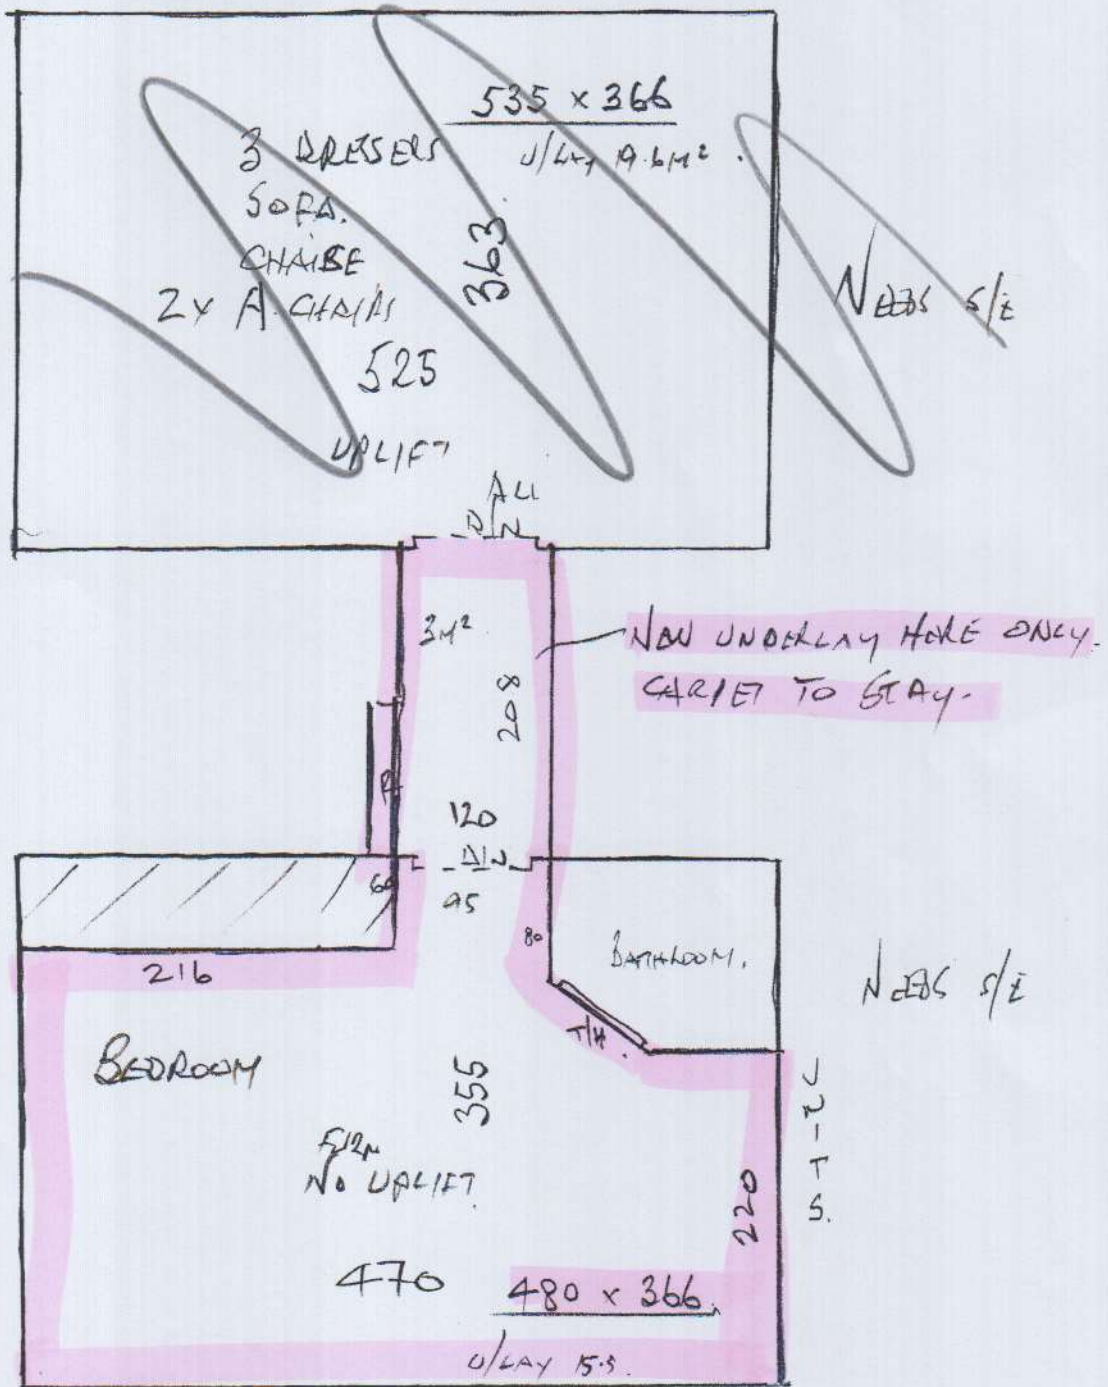 535 x 366
U/LAY 19.6M²
3 DRESSERS
SOFA.
CHAISE
2x A. CHAIRS
363
525
UPLIFT
NEEDS S/E
ALI
3M²
208
120
NEW UNDERLAY HERE ONLY.
CARPET TO STAY.
60
95
80
216
BATHROOM.
T/H.
NEEDS S/E
BEDROOM
355
NO UPLIFT
220
470
480 x 366.
U/LAY 15.5.